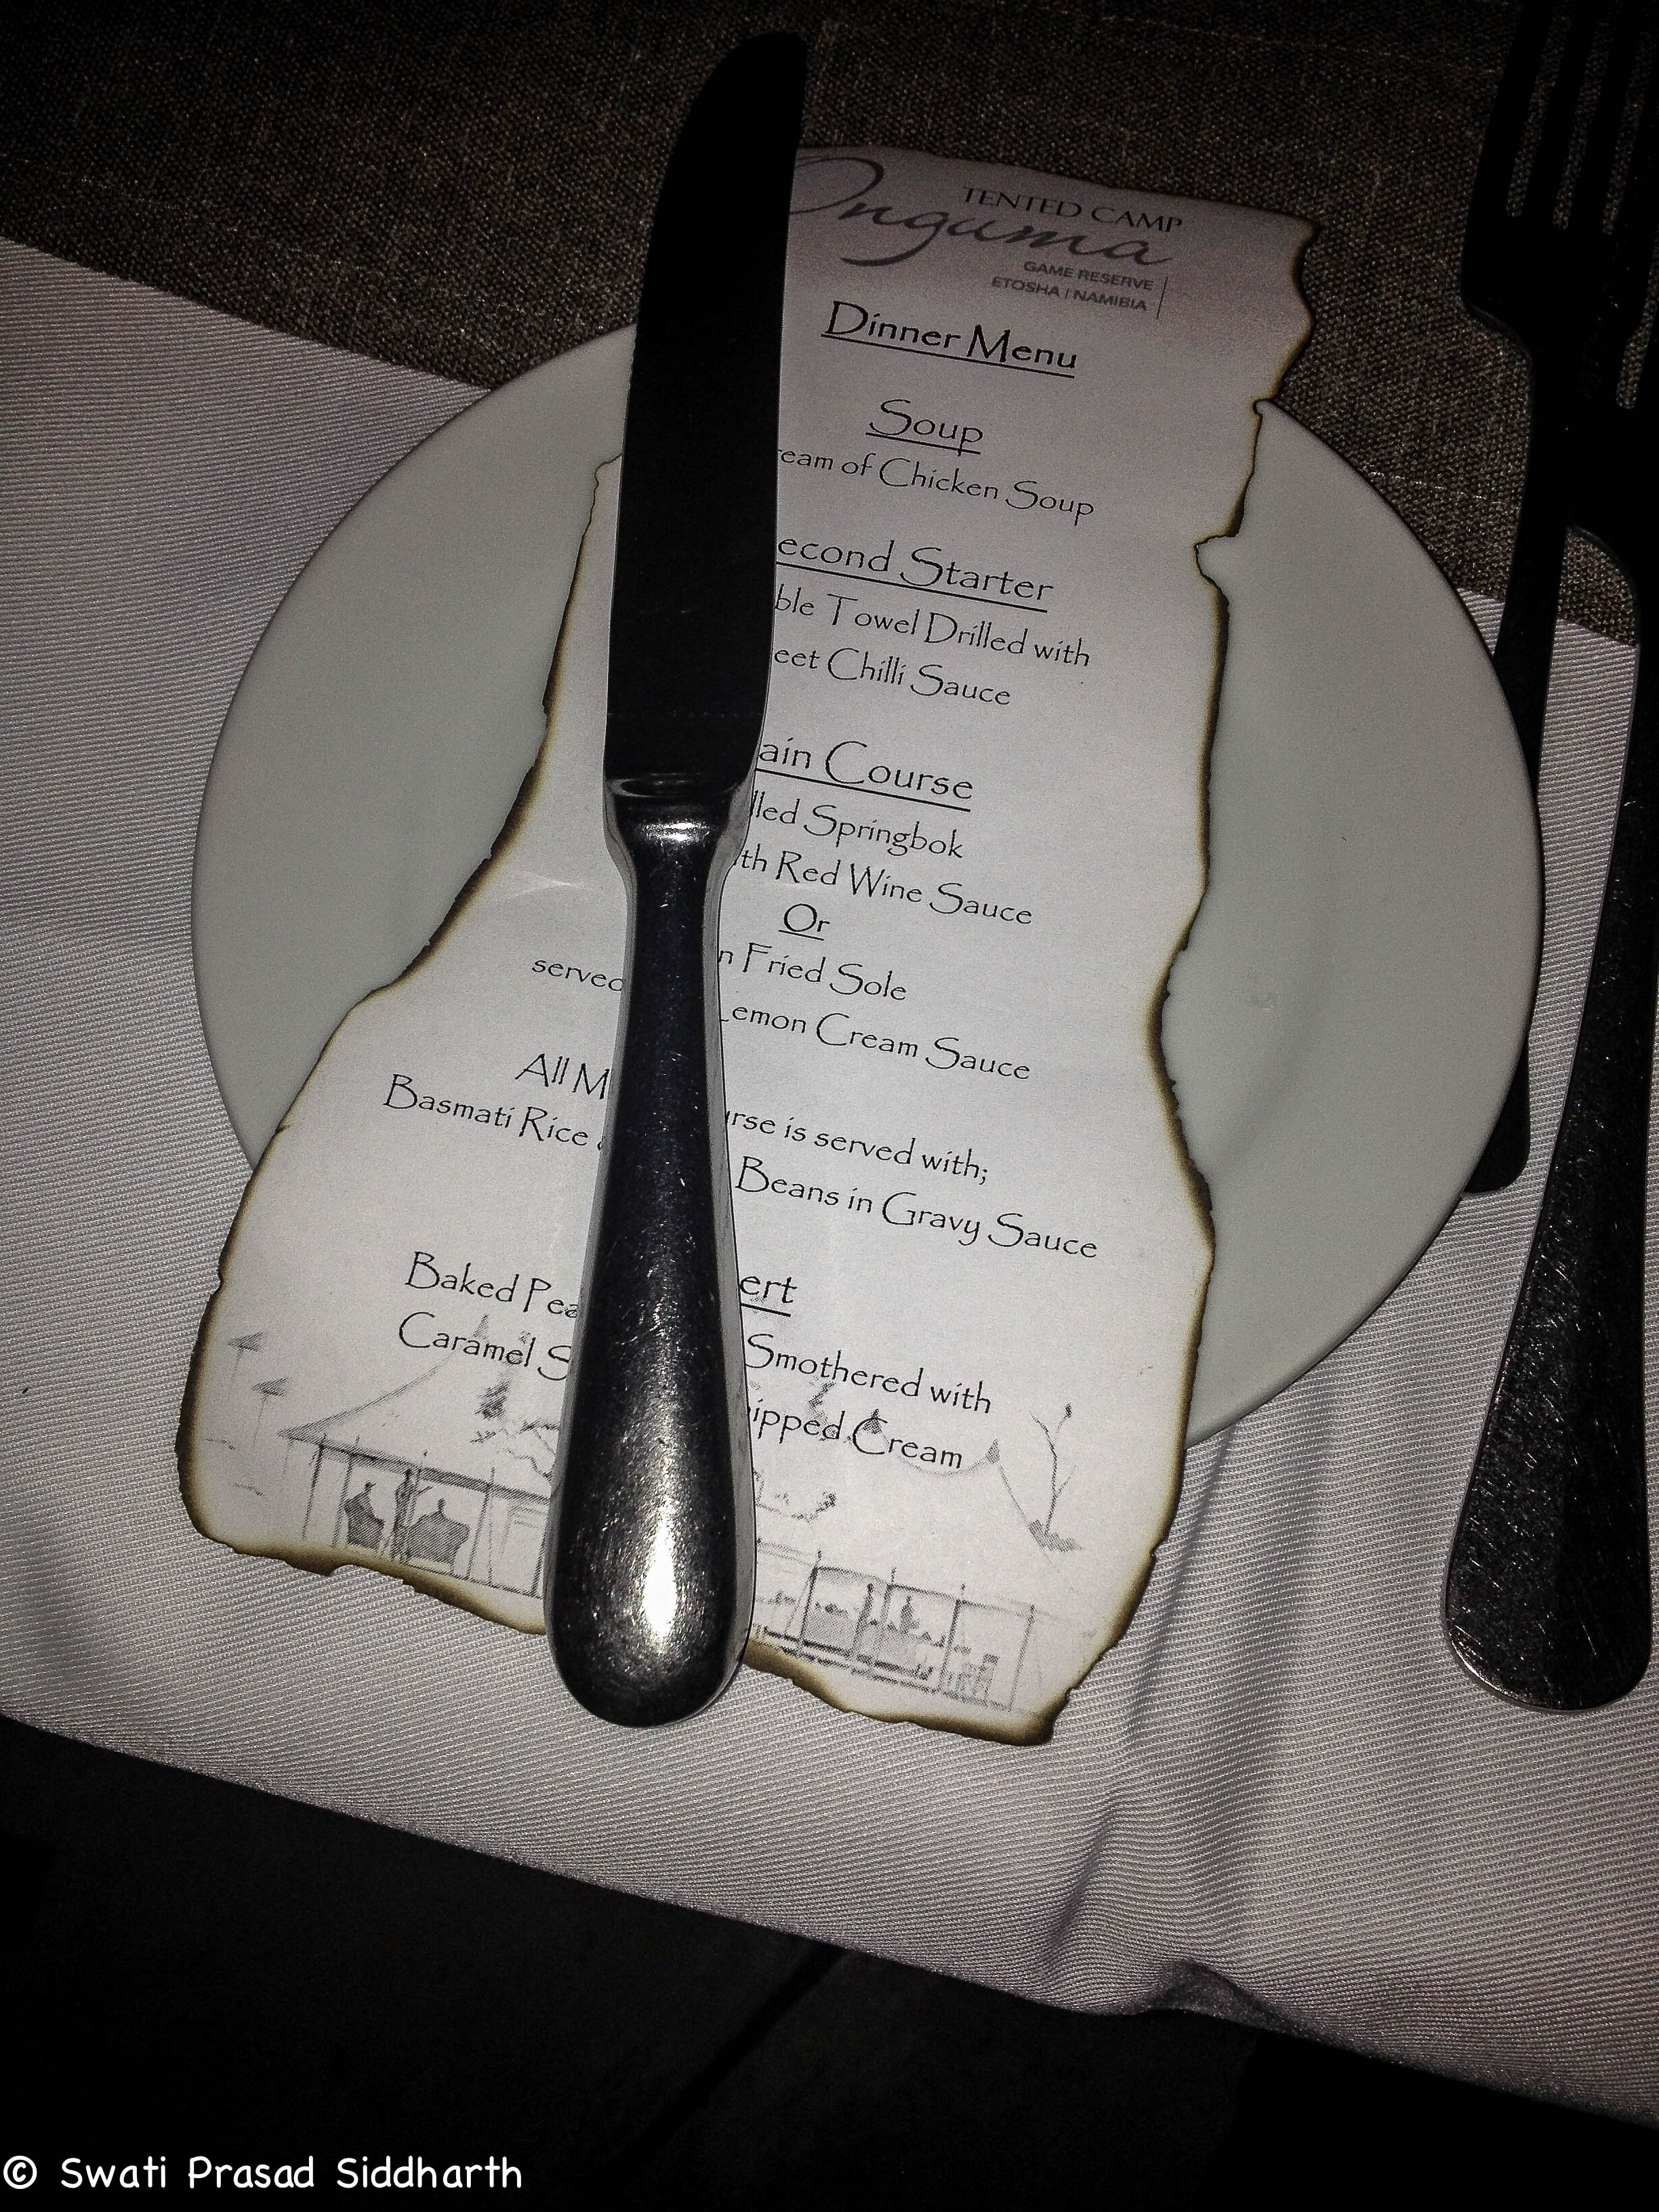 Onguma
TENTED CAMP
GAME RESERVE
ETOSHA | NAMIBIA
Dinner Menu
Soup
eam of Chicken Soup
econd Starter
ble Towel Drilled with
eet Chilli Sauce
ain Course
lled Springbok
th Red Wine Sauce
Or
n Fried Sole
served Lemon Cream Sauce
All M urse is served with;
Basmati Rice Beans in Gravy Sauce
ert
Baked Pea Smothered with
Caramel S ipped Cream
© Swati Prasad Siddharth